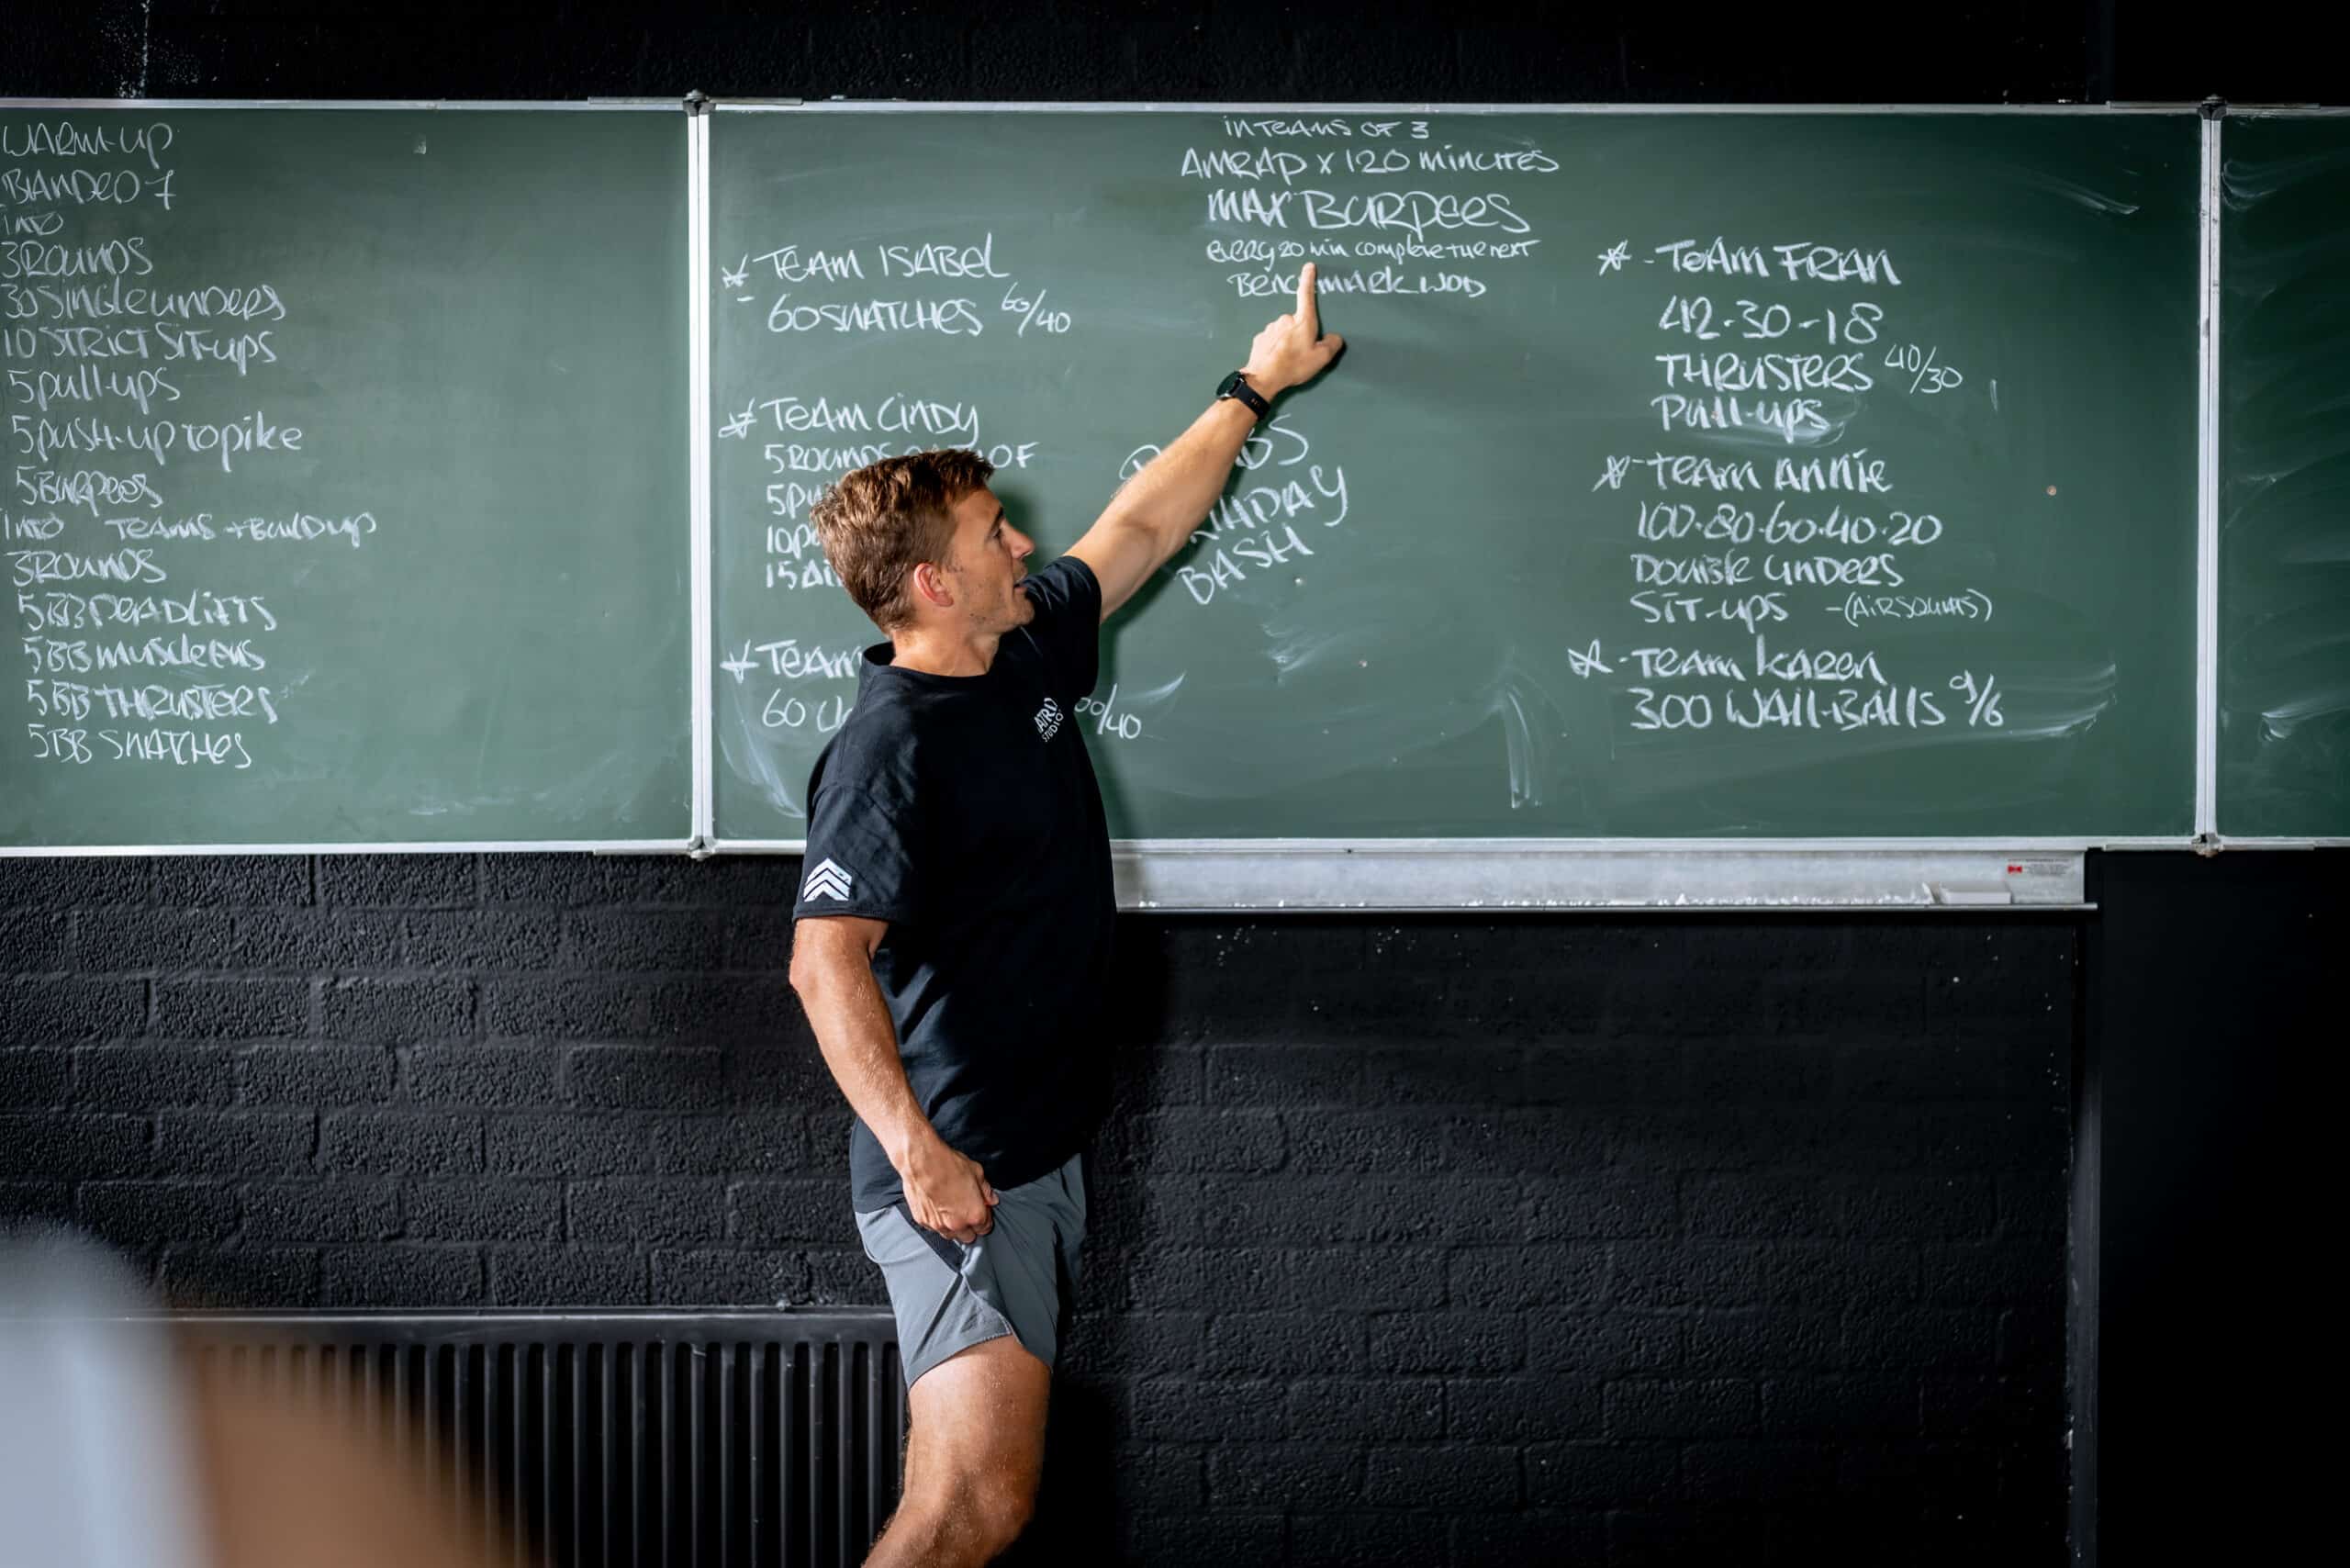 WARM-UP
BANDED 7
INTO
3 ROUNDS
30 SINGLE UNDERS
10 STRICT SIT-UPS
5 PULL-UPS
5 PUSH-UP TO PIKE
5 BURPEES
INTO TEAMS + BUILD UP
3 ROUNDS
5 BB DEADLIFTS
5 BB
5 BB THRUSTERS
5 BB SNATCHES
IN TEAMS OF 3
AMRAP X 120 MINUTES
MAX BURPEES
EVERY 20 MIN COMPLETE THE NEXT
BENCHMARK WOD
* TEAM ISABEL
- 60 SNATCHES 60/40
* TEAM CINDY
5 ROUNDS OF
5
10
15
* TEAM
60 /40
DAY
BASH
* - TEAM FRAN
42-30-18
THRUSTERS 40/30
PULL-UPS
* - TEAM ANNIE
100-80-60-40-20
DOUBLE UNDERS
SIT-UPS - (AIRSQUATS)
* - TEAM KAREN
300 WALL-BALLS 9/6